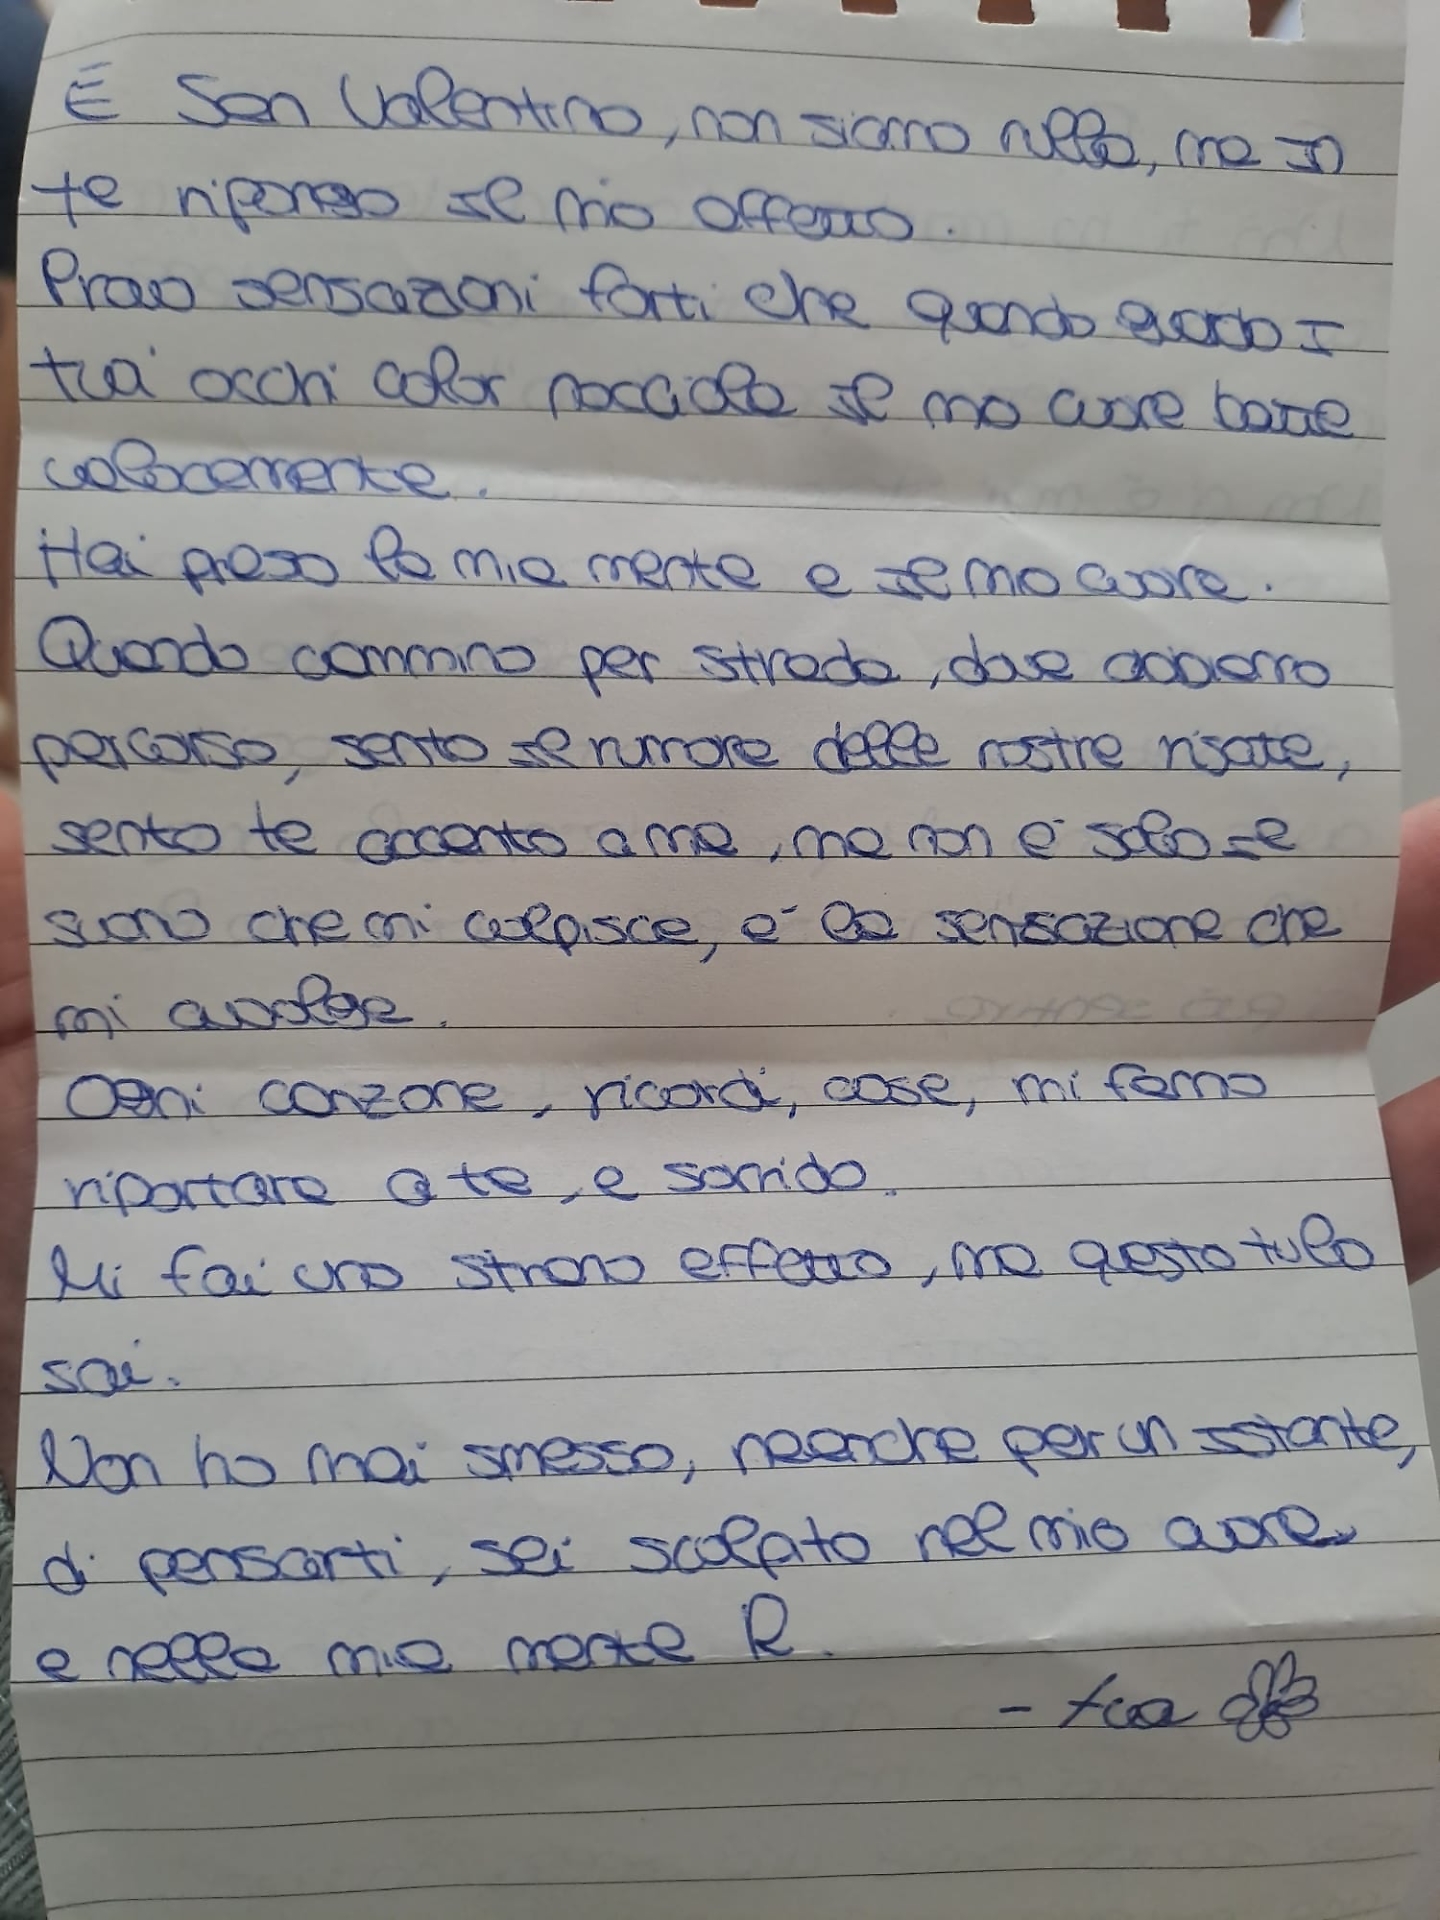 È San Valentino, non siamo nulla, ma in
te ripongo il mio affetto.
Provo sensazioni forti che quando guardo i
tuoi occhi color nocciola il mio cuore batte
velocemente.
Hai preso la mia mente e il mio cuore.
Quando cammino per strada, dove abbiamo
percorso, sento il rumore delle nostre risate,
sento te accanto a me, ma non è solo il
suono che mi colpisce, è la sensazione che
mi avvolge.
Ogni canzone, ricordi, cose, mi fanno
riportare a te, e sorrido.
Mi fai uno strano effetto, ma questo tu lo
sai.
Non ho mai smesso, neanche per un istante,
di pensarti, sei scolpito nel mio cuore
e nella mia mente R.
- tua